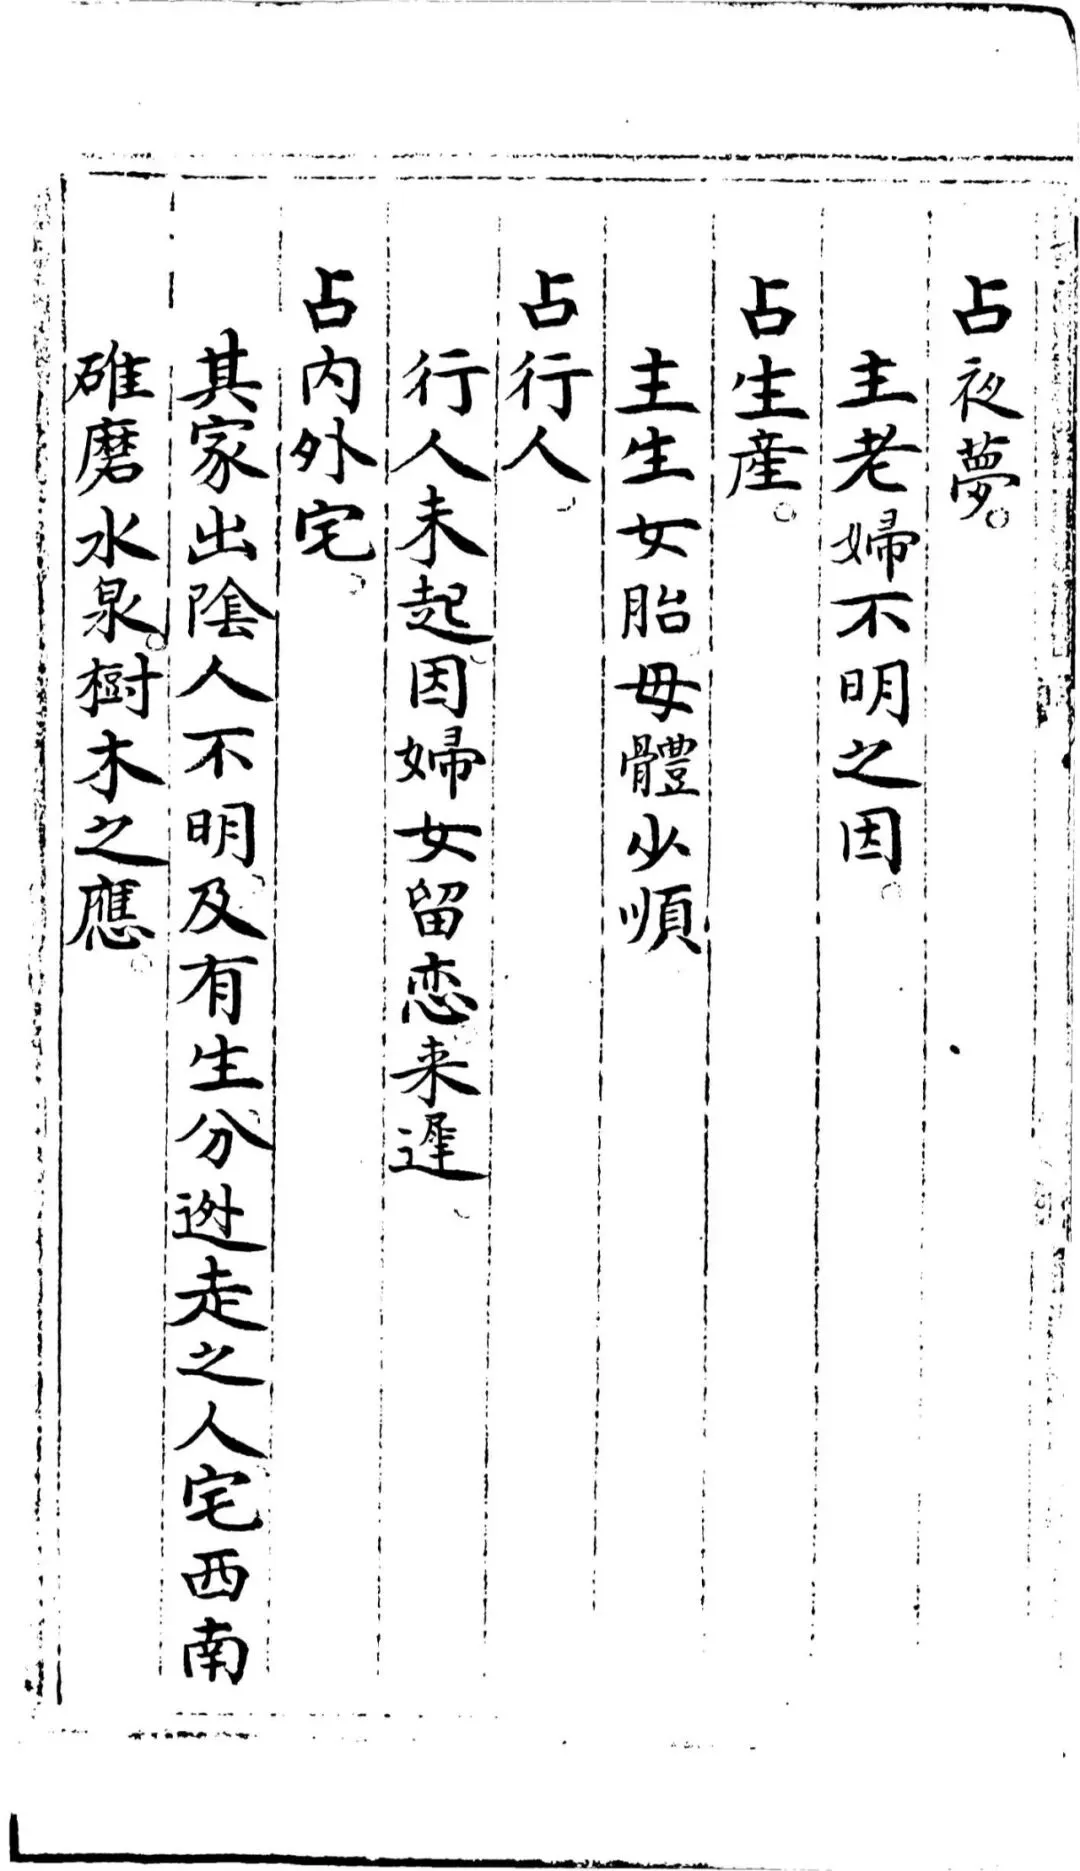 占夜夢。
主老婦不明之因。
占生產。
主生女胎母體少順
占行人。
行人未起因婦女留恋来遲。
占内外宅。
其家出陰人不明及有生分逃走之人宅西南
碓磨水泉。樹木之應。